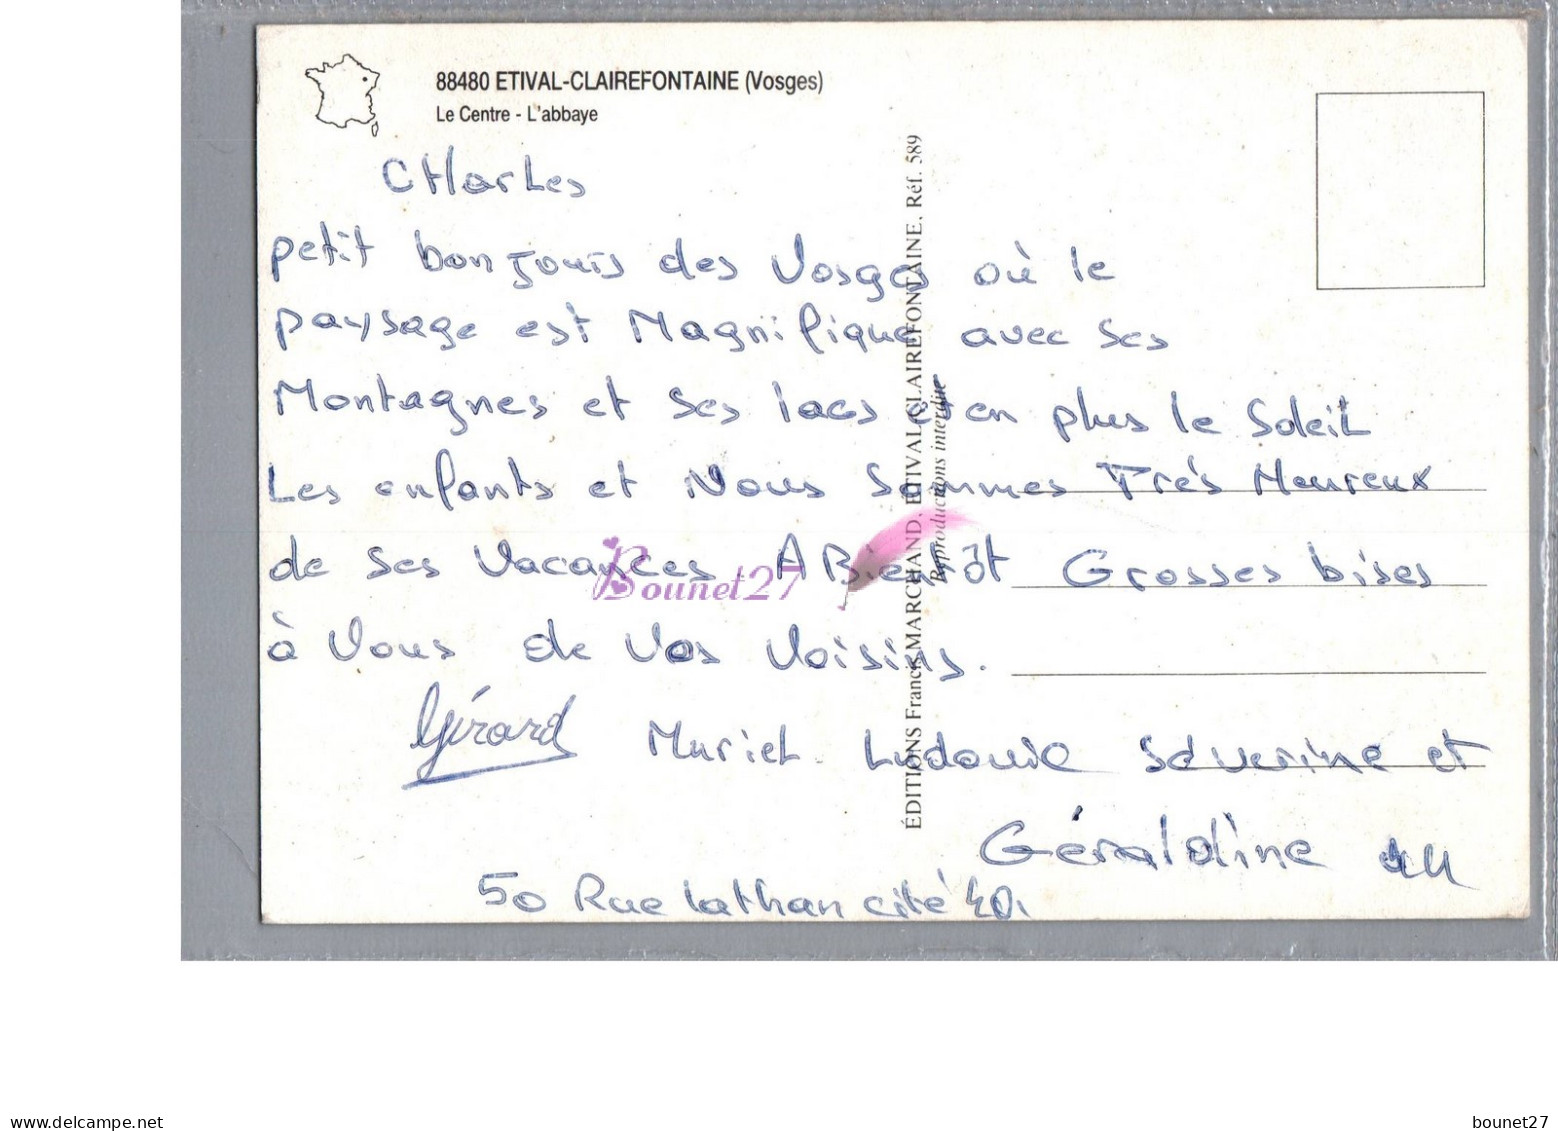 88480 ETIVAL-CLAIREFONTAINE (Vosges)
Le Centre - L'abbaye
CHarLes
petit bonjours des Vosges où le
paysage est Magnifique avec ses
Montagnes et ses lacs et en plus le SoleiL
Les enfants et Nous Sommes Très Heureux
de ses Vacances A Bientôt Grosses bises
à Vous de Vos Voisins.
Gérard MurieL Ludovic Séverine et
Géraldine
50 Rue Lathan cité
ÉDITIONS Francis MARCHAND, ÉTIVAL-CLAIREFONTAINE. Réf. 589
Reproductions interdite
Bounet27
www.delcampe.net
bounet27